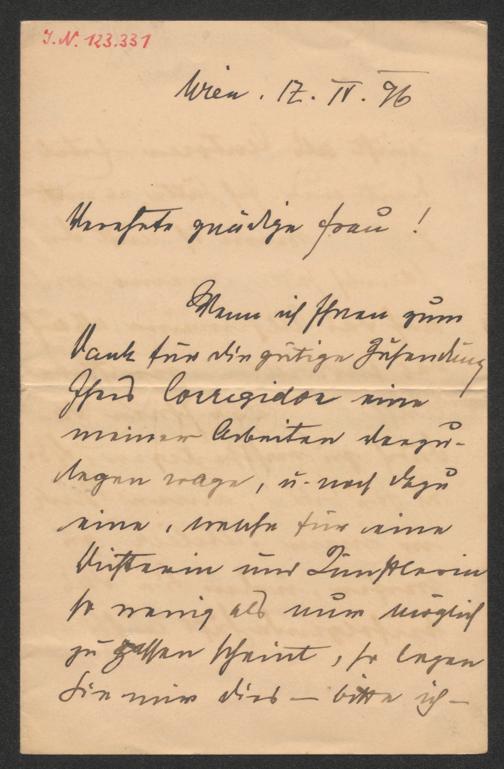 I. N. 123.331
Wien. 17. IV. 96
Verehrte gnädige Frau!
Wenn ich Ihnen zum
Dank für die gütige Zusendung
Ihres Corregidor eine
meiner Arbeiten darzu-
legen wage, u. noch dazu
eine, welche für eine
Dichterin und Künstlerin
so wenig als nur möglich
zu passen scheint, so legen
Sie mir dies – bitte ich –